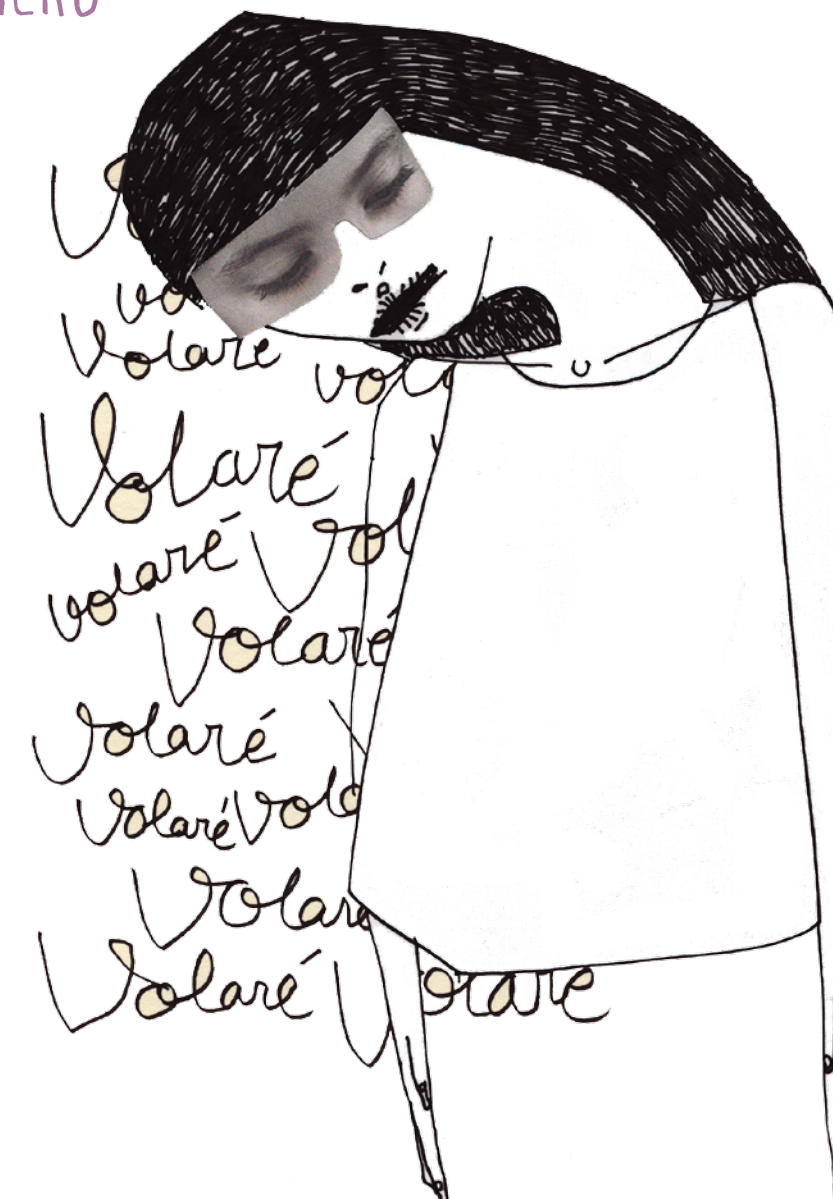 Vo
vo
Volare vola
Volaré
volaré Vol
Volaré
Volaré
Volaré Vola
Volare
Volaré Volare